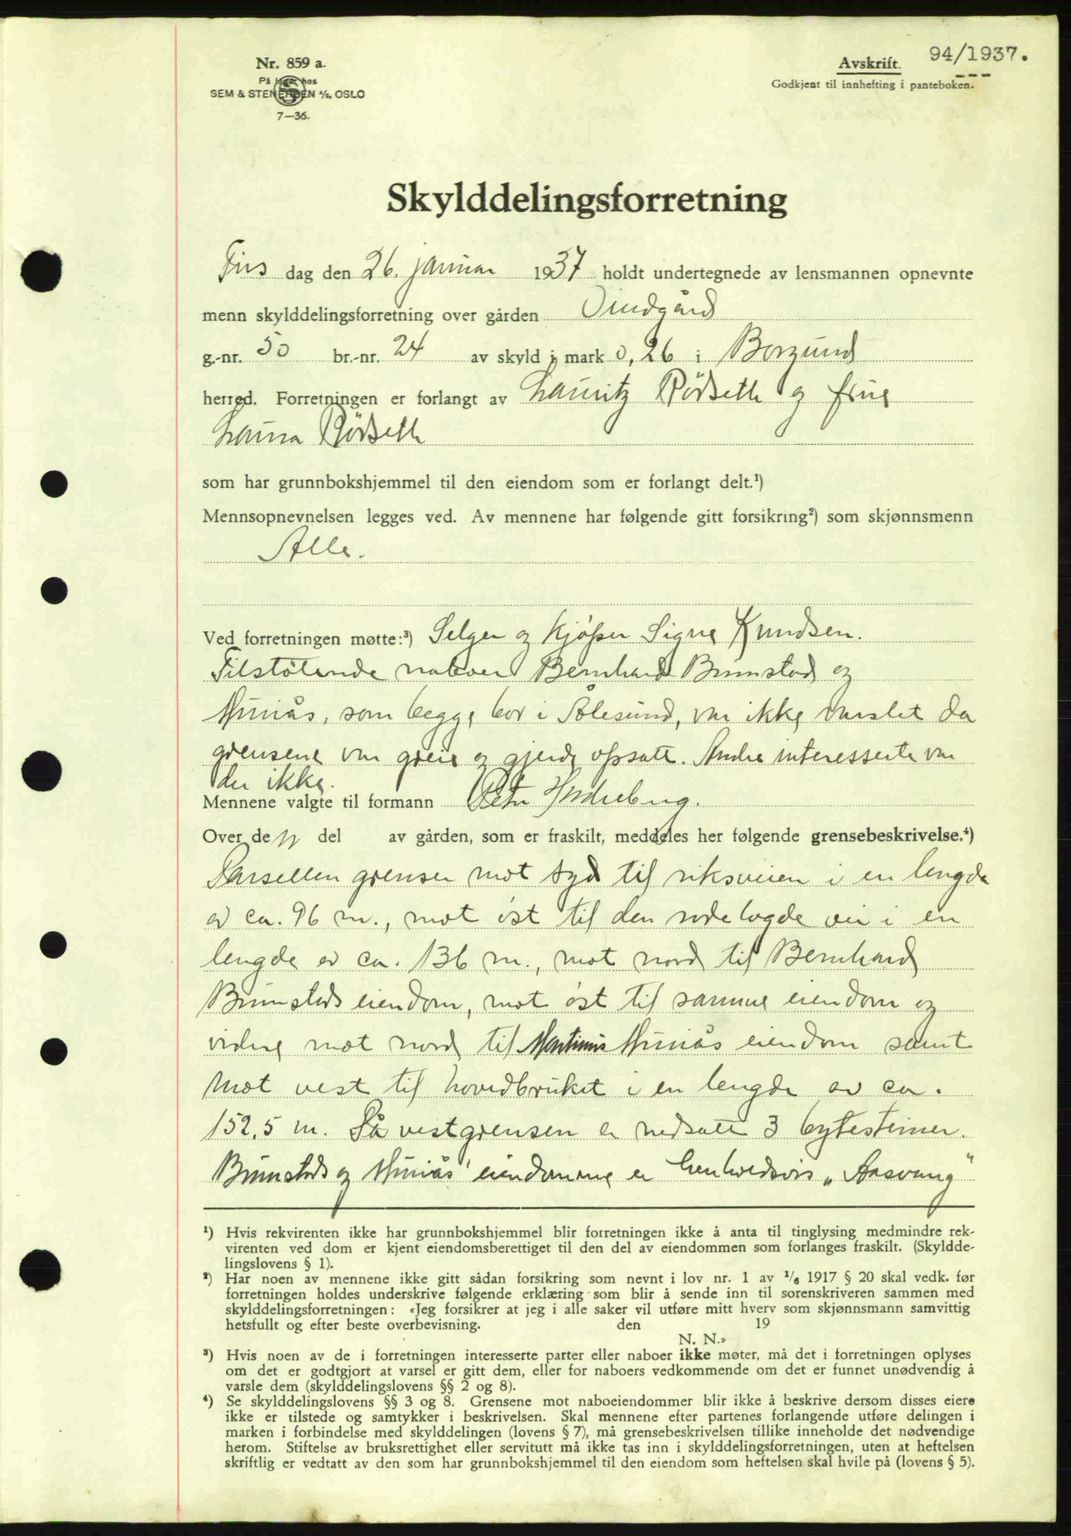 Nr. 859 a.
På lager hos
SEM & STENERSEN A/S, OSLO
7—36.
Avskrift. 94/1937.
Godkjent til innhefting i panteboken.
Skylddelingsforretning
Tirs dag den 26. januar 1937 holdt undertegnede av lensmannen opnevnte
menn skylddelingsforretning over gården Vindgård
g.-nr. 50 br.-nr. 24 av skyld i mark 0,26 i Borgund
herred. Forretningen er forlangt av Lauritz Rödseth og frue
Laura Rödseth
som har grunnbokshjemmel til den eiendom som er forlangt delt.¹)
Mennsopnevnelsen legges ved. Av mennene har følgende gitt forsikring²) som skjønnsmenn
Alle.
Ved forretningen møtte:³) Selger og kjöper Signe Knudsen.
Tilstötende naboer Bernhard Brunstad og
Muriås, som begge bor i Ålesund, var ikke varslet da
grensene var greie og gjerde opsatt. Andre interesserte var
der ikke.
Mennene valgte til formann Petr Hödreberg.
Over de n del av gården, som er fraskilt, meddeles her følgende grensebeskrivelse.⁴)
Parsellen grenser mot syd til riksveien i en lengde
av ca. 96 m., mot öst til denödelagde vei i en
lengde av ca. 136 m., mot nord til Bernhard
Brunstads eiendom, mot öst til samme eiendom og
videre mot nord til Martinus Muriås eiendom samt
mot vest til hovedbruket i en lengde av ca.
152,5 m. På vestgrensen er nedsatt 3 bytesteiner.
Brunstads og Muriås' eiendomme er henholdsvis „Aasvang"
¹) Hvis rekvirenten ikke har grunnbokshjemmel blir forretningen ikke å anta til tinglysing medmindre rek-
virenten ved dom er kjent eiendomsberettiget til den del av eiendommen som forlanges fraskilt. (Skyldde-
lingslovens § 1).
²) Har noen av mennene ikke gitt sådan forsikring som nevnt i lov nr. 1 av ¹/₆ 1917 § 20 skal vedk. før
forretningen holdes underskrive følgende erklæring som blir å sende inn til sorenskriveren sammen med
skylddelingsforretningen: «Jeg forsikrer at jeg i alle saker vil utføre mitt hverv som skjønnsmann samvittig
hetsfullt og efter beste overbevisning. den 19
N. N.»
³) Hvis noen av de i forretningen interesserte parter eller naboer ikke møter, må det i forretningen oplyses
om det er godtgjort at varsel er gitt dem, eller for naboers vedkommende om det er funnet unødvendig å
varsle dem (skylddelingslovens §§ 2 og 8).
⁴) Se skylddelingslovens §§ 3 og 8. Grensene mot naboeiendommer blir ikke å beskrive dersom disses eiere
ikke er tilstede og samtykker i beskrivelsen. Skal mennene efter partenes forlangende utføre delingen i
marken i forbindelse med skylddelingen (lovens § 7), må grensebeskrivelsen tillike inneholde det nødvendige
herom. Stiftelse av bruksrettighet eller servitutt må ikke tas inn i skylddelingsforretningen, uten at heftelsen
skriftlig er vedtatt av den som har grunnbokshjemmel til den eiendom som heftelsen skal hvile på (lovens § 5).